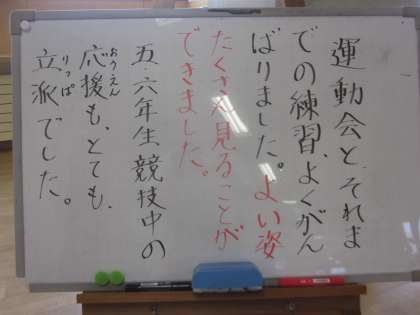 運動会と、それま
での練習、よくがん
ばりました。よい姿
たくさん見ることが
できました。
五・六年生競技中の
応援も、とても、
おうえん
立派でした。
りっぱ